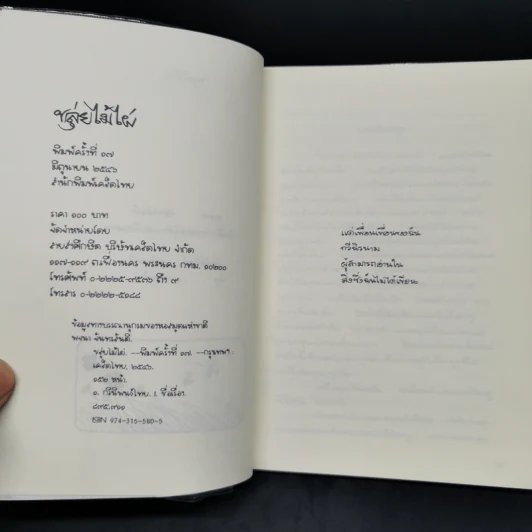 ขลุ่ยไม้ไผ่
พิมพ์ครั้งที่ ๑๗
มิถุนายน ๒๕๔๖
สำนักพิมพ์เคล็ดไทย
ราคา ๑๐๐ บาท
จัดจำหน่ายโดย
สายส่งศึกษิต บริษัทเคล็ดไทย จำกัด
๑๑๗-๑๑๙ ถ.เฟื่องนคร พระนคร กทม. ๑๐๒๐๐
โทรศัพท์ ๐-๒๒๒๕-๙๕๓๖ ถึง ๙
โทรสาร ๐-๒๒๒๒-๕๑๘๘
ข้อมูลทางบรรณานุกรมของหอสมุดแห่งชาติ
พจนา จันทรสันติ.
ขลุ่ยไม้ไผ่. --พิมพ์ครั้งที่ ๑๗. --กรุงเทพฯ :
เคล็ดไทย, ๒๕๔๖.
๑๕๒ หน้า.
๑. กวีนิพนธ์ไทย. I. ชื่อเรื่อง.
๘๙๕.๙๑๑
ISBN 974-315-580-5
แด่เพื่อนเพื่อนของฉัน
กวีนิรนาม
ผู้สามารถอ่านใน
สิ่งที่ฉันไม่ได้เขียน